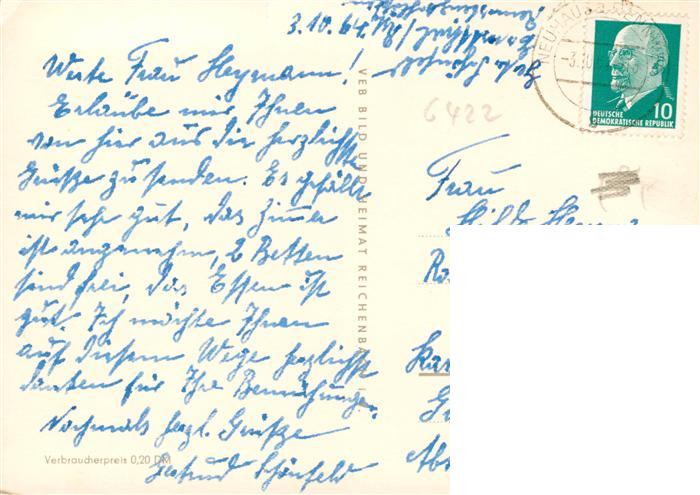 3.10.64
Werte Frau Heymann!
Erlaube mir Ihnen
von hier aus die herzlichste
Grüße zu senden. Es gefällt
mir sehr gut, das Zimmer
ist angenehm, 2 Betten
sind frei, das Essen ist
gut. Ich möchte Ihnen
auf diesem Wege herzlichst
danken für Ihre Bemühungen.
Nochmals herzl. Grüße
Gertrud Schönfeld
Verbraucherpreis 0,20 DM
VEB BILD UND HEIMAT REICHENBA
6422
NEUHAUS
-3.10
10
DEUTSCHE
DEMOKRATISCHE REPUBLIK
Frau